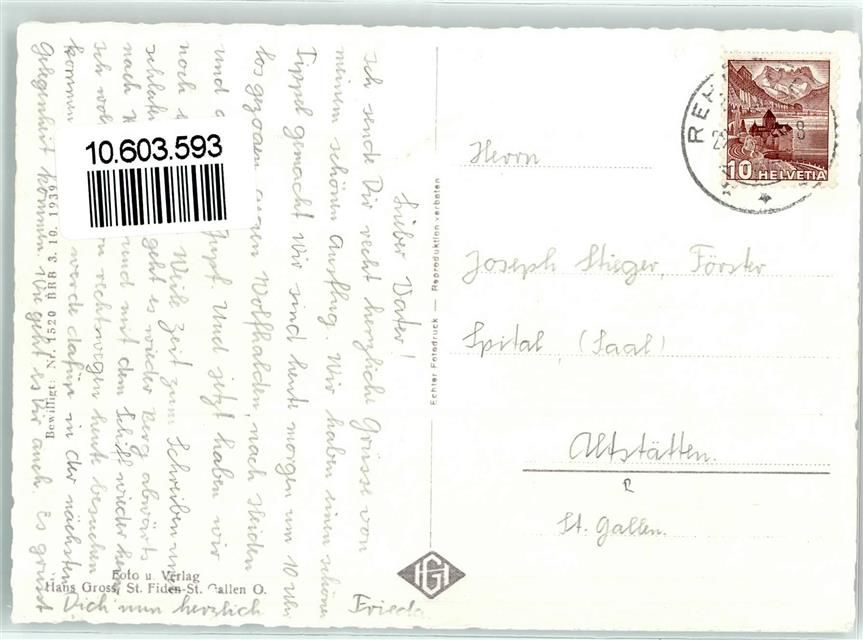 Lieber Vater!
Ich sende Dir recht herzliche Grüsse von
meinem schönen Ausflug. Wir haben einen schönen
Tippel gemacht Wir sind heute morgen um 10 Uhr
los gezogen gegen Wolfhalden, nach Heiden
und Und jetzt haben wir
noch Weile Zeit zum Schreiben und
schlafen geht es wieder berg abwärts
nach und mit dem Schiff wieder heim
Ich rechtwegen heute besuchen
kommen werde dafür in der nächsten
Gelegenheit kommen. Wie geht es Dir auch. Es grüsst
Dich nun herzlich
Frieda
Bewilligt: Nr. 1520 BRB 3. 10. 1939
Foto u. Verlag
Hans Gross, St. Fiden-St. Gallen O.
10.603.593
Echter Fotodruck — Reproduktion verboten
HG
REH
22
8
10 HELVETIA
Herrn
Joseph Stieger, Förster
Spital (Saal)
Altstätten.
St. Gallen.